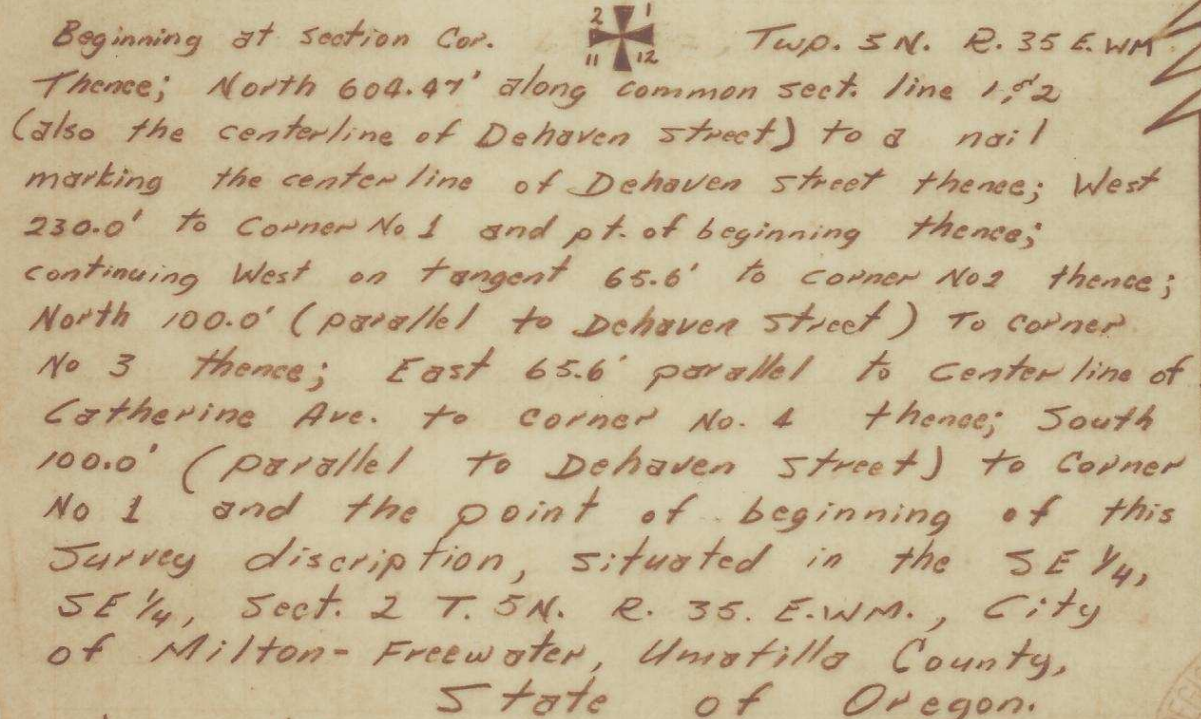 Beginning at section Cor. 2 1 11 12 Twp. 5 N. R. 35 E. WM
Thence; North 604.47' along common sect. line 1 & 2
(also the centerline of Dehaven street) to a nail
marking the centerline of Dehaven street thence; West
230.0' to Corner No 1 and pt. of beginning thence;
continuing West on tangent 65.6' to corner No2 thence;
North 100.0' (parallel to Dehaven street) To corner
No 3 thence; East 65.6' parallel to centerline of
Catherine Ave. to corner No. 4 thence; South
100.0' (parallel to Dehaven street) to Corner
No 1 and the point of beginning of this
Survey discription, situated in the SE 1/4,
SE 1/4, Sect. 2 T. 5N. R. 35. E.WM., City
of Milton-Freewater, Umatilla County,
State of Oregon.